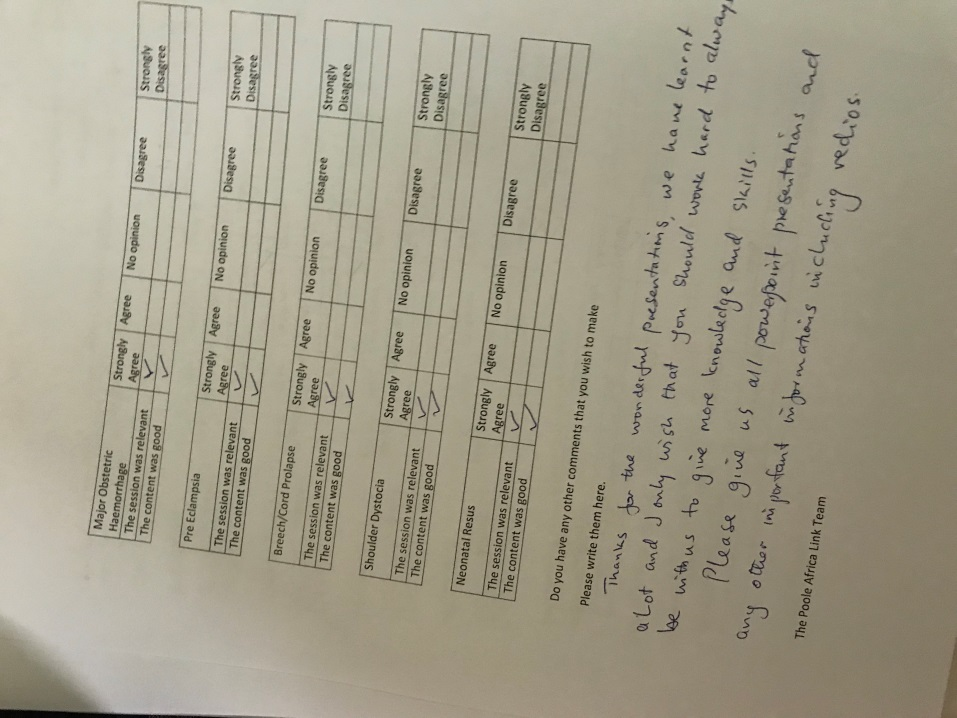 Major Obstetric Haemorrhage Strongly Agree Agree No opinion Disagree Strongly Disagree
The session was relevant ✓
The content was good ✓
Pre Eclampsia Strongly Agree Agree No opinion Disagree Strongly Disagree
The session was relevant ✓
The content was good ✓
Breech/Cord Prolapse Strongly Agree Agree No opinion Disagree Strongly Disagree
The session was relevant ✓
The content was good ✓
Shoulder Dystocia Strongly Agree Agree No opinion Disagree Strongly Disagree
The session was relevant ✓
The content was good ✓
Neonatal Resus Strongly Agree Agree No opinion Disagree Strongly Disagree
The session was relevant ✓
The content was good ✓
Do you have any other comments that you wish to make
Please write them here.
Thanks for the wonderful presentations, we have learnt
a lot and I only wish that you should work hard to always
be with us to give more knowledge and skills.
Please give us all powerpoint presentations and
any other important informations including vedios.
The Poole Africa Link Team